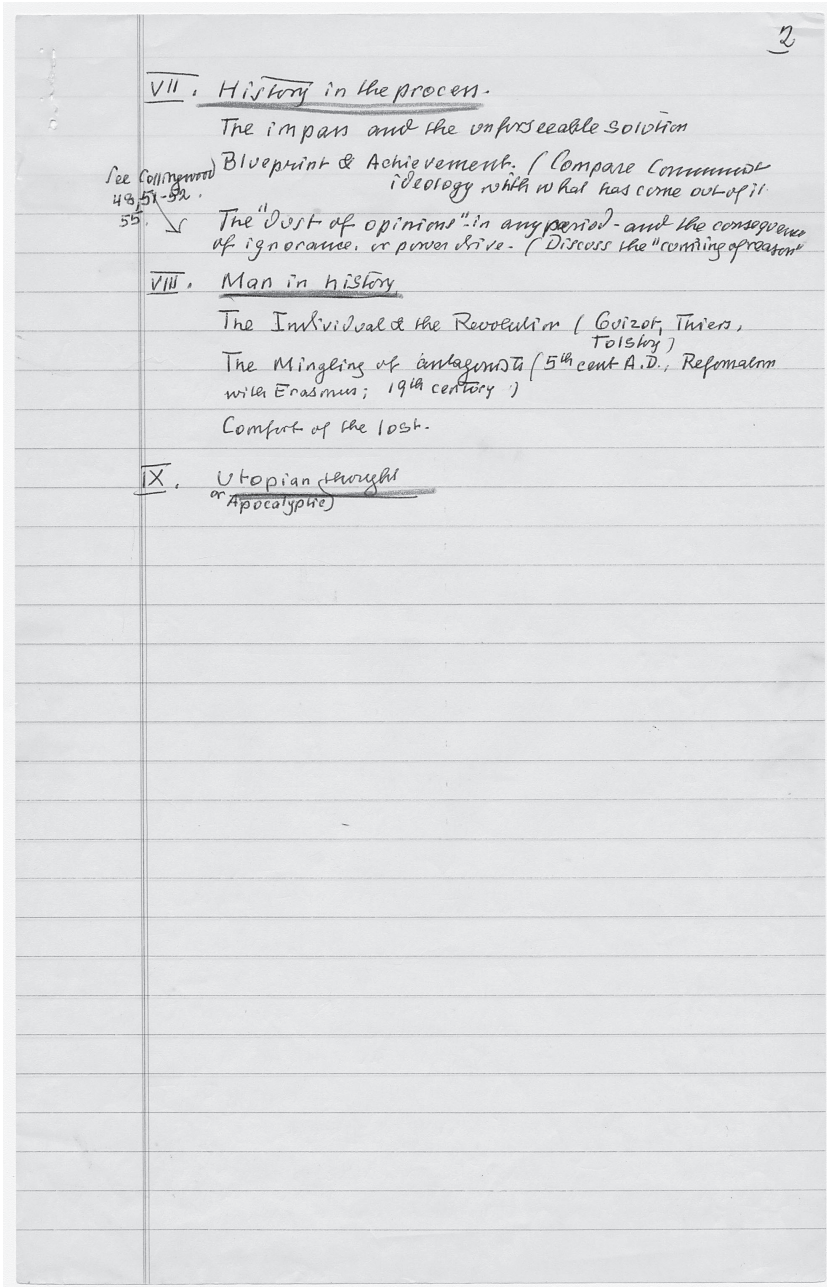 2
VII. History in the process.
The impass and the unforseeable solution
Blueprint & Achievement. (Compare Communist
ideology with what has come out of it.
See Collingwood)
48, 51-52.
55.
The "dust of opinions" - in any period - and the consequence
of ignorance, or power drive. - (Discuss the "cunning of reason"
VIII. Man in history
The Individual & the Revolution (Guizot, Thiers,
Tolstoy)
The Mingling of antagonists (5th cent A.D., Refomation
with Erasmus; 19th century)
Comfort of the lost.
IX. Utopian thought
or Apocalyptic)